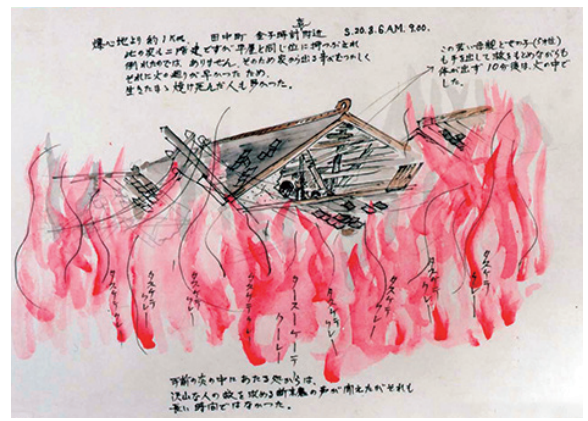 爆心地より約1Km. 田中町 金子 附近 S.20.8.6.A.M. 9.00.
此の家も二階建ですが平屋と同じ位に押つぶされ
倒れたのでは ありません、そのため家から出る事がむつかしく
それに火の廻りが早かったため、
生きたまゝ焼け死んだ人も多かった。
この若い母親と女の子(5才位)
も手を出して救をもとめながらも
体が出ず 10分後は、火の中で
した。
タスケテ
クレー
タスケテ
クレー
タスケテ
クレー
タースーケーテ
クーレー
タスケテ
クレー
タスケテ
クレー
タスケテ
クレー
手前の炎の中にあたる処からは、
沢山な人の救を攻める断末魔の声が聞えたがそれも
長い時間ではなかった。